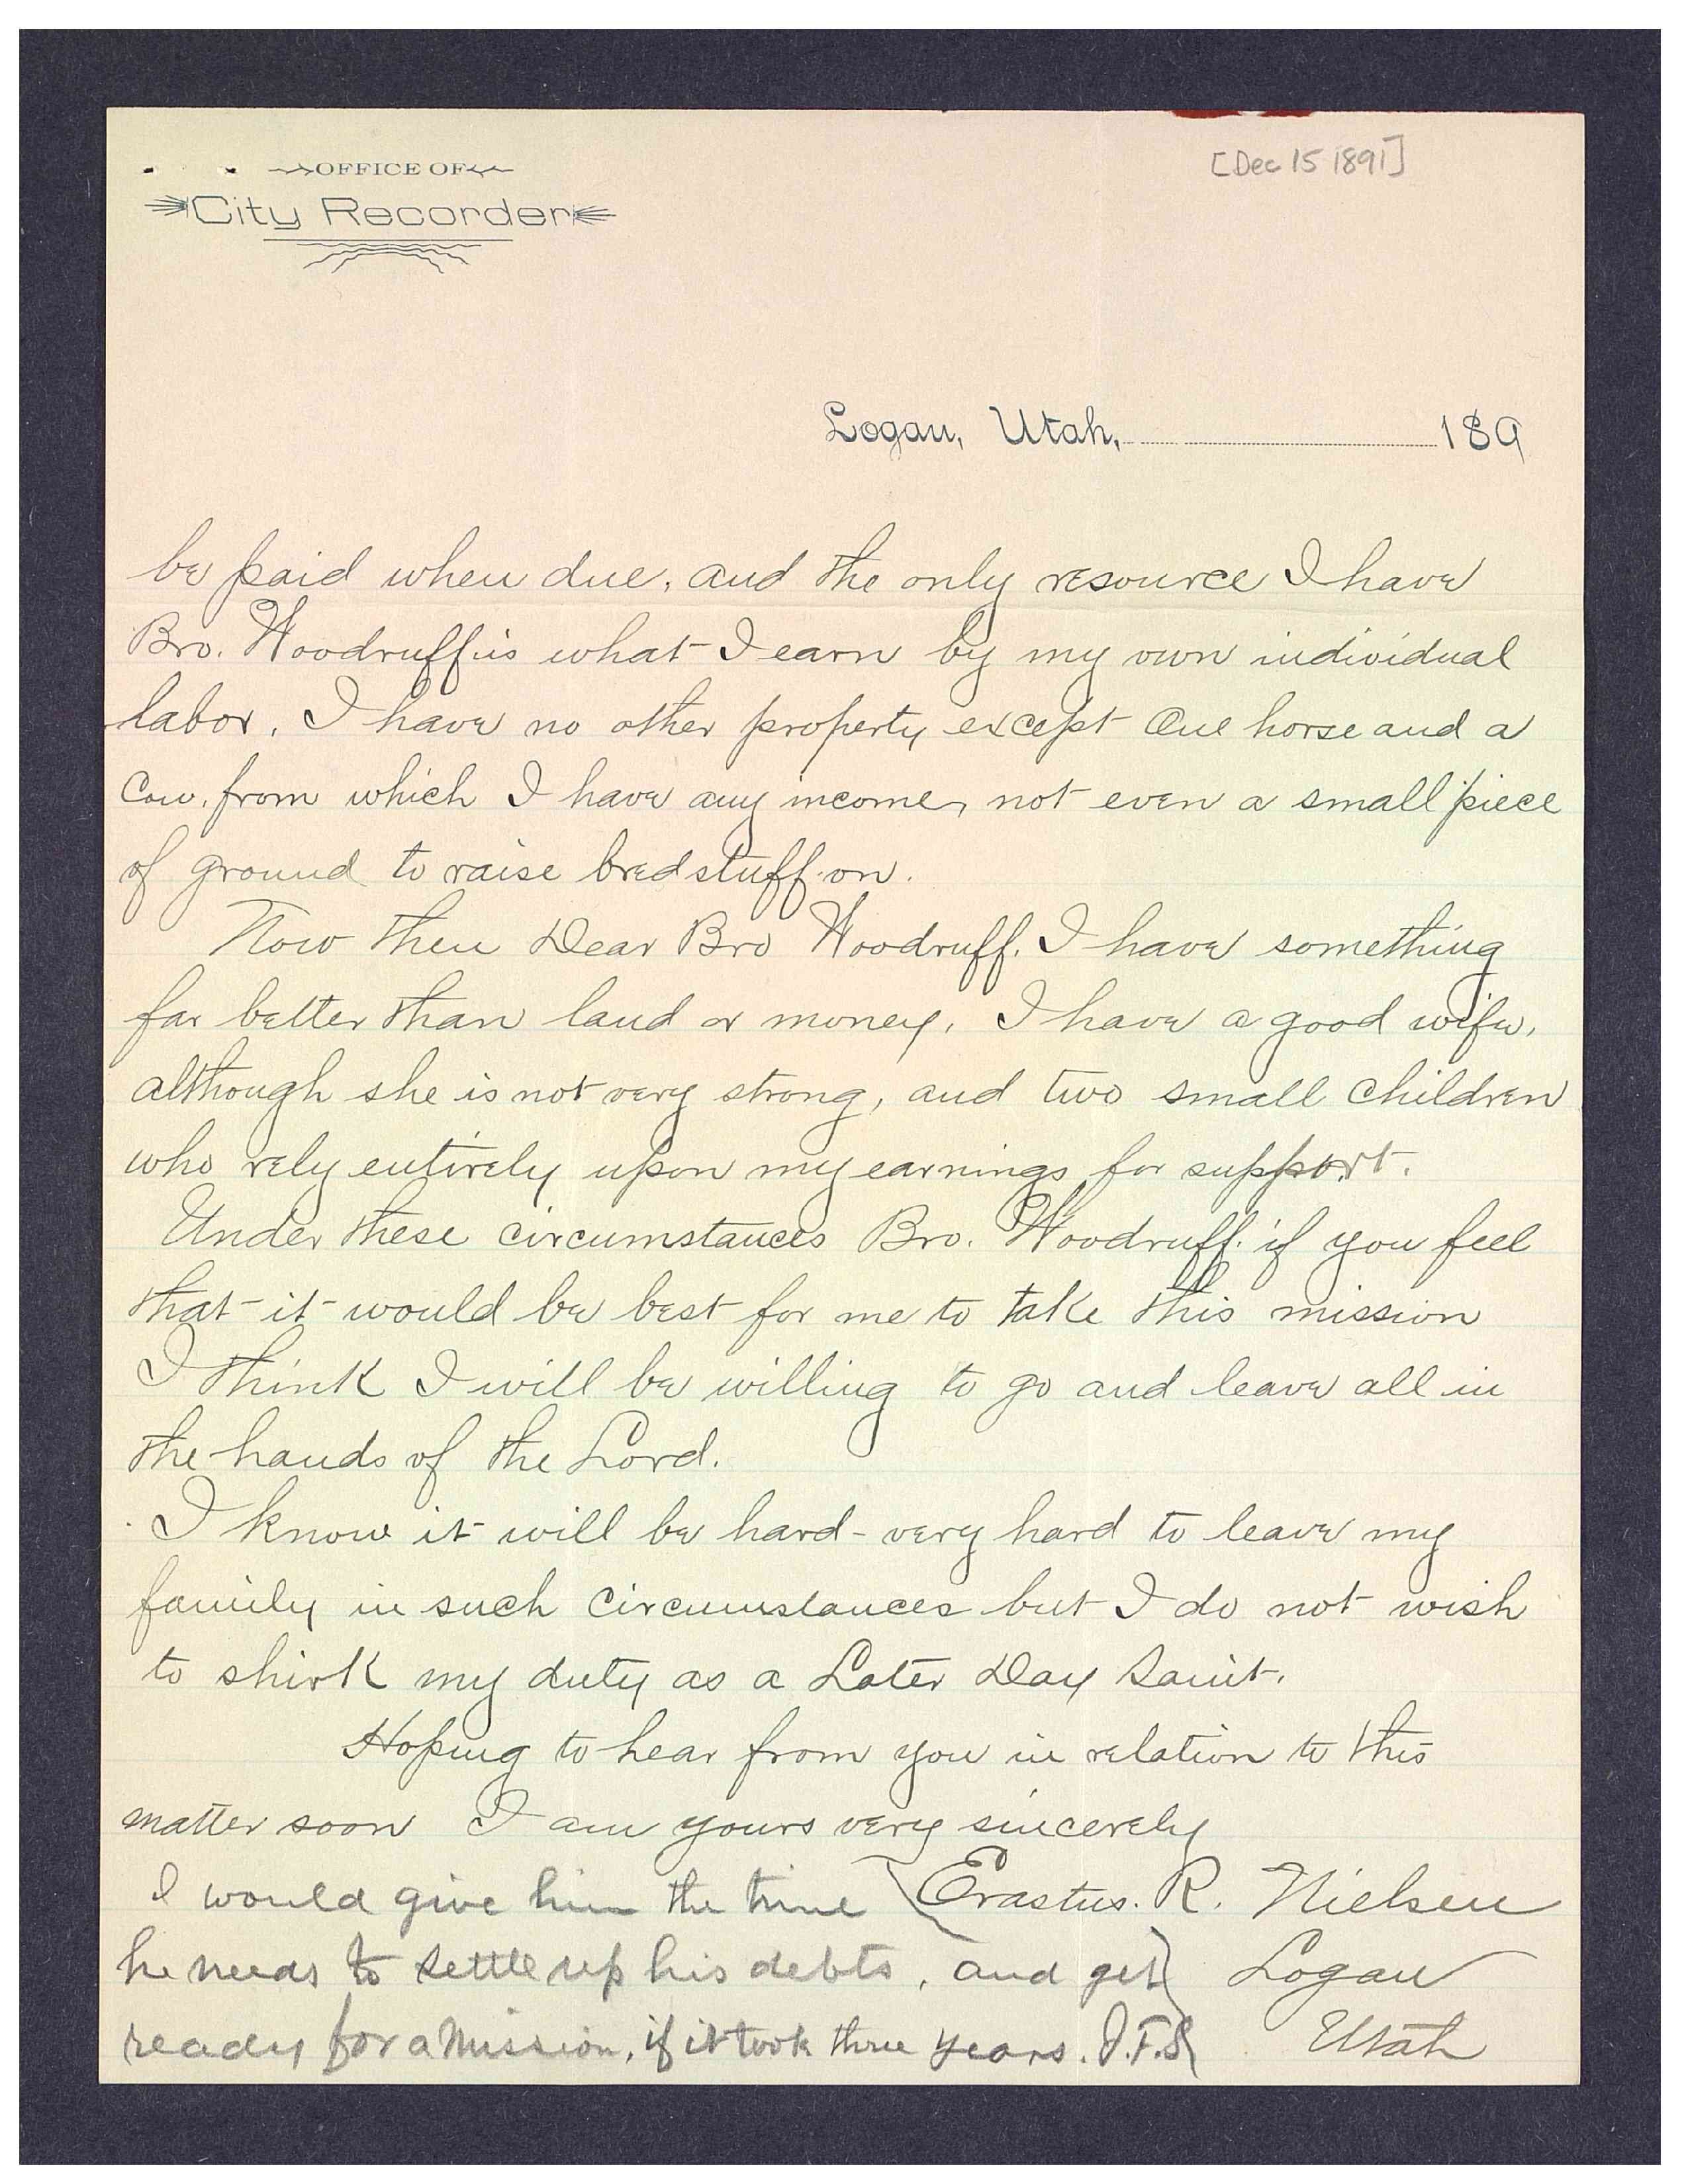 OFFICE OF
[Dec 15 1891]
City Recorder
Logan, Utah, 189
be paid when due, and the only resource I have
Bro. Woodruff is what I earn by my own individual
labor, I have no other property except One horse and a
Cow, from which I have any income, not even a small piece
of ground to raise bredstuff on.
Now then Dear Bro Woodruff. I have something
far better than land or money, I have a good wife,
although she is not very strong, and two small children
who rely entirely upon my earnings for support.
Under these circumstances Bro. Woodruff. if you feel
that it would be best for me to take this mission
I think I will be willing to go and leave all in
the hands of the Lord.
I know it will be hard - very hard to leave my
family in such circumstances but I do not wish
to shirk my duty as a Later Day Saint.
Hoping to hear from you in relation to this
matter soon I am yours very sincerely
Erastus. R. Nielsen
Logan
Utah
I would give him the time
he needs to settle up his debts, and get
ready for a mission, if it took three years. J.F.S